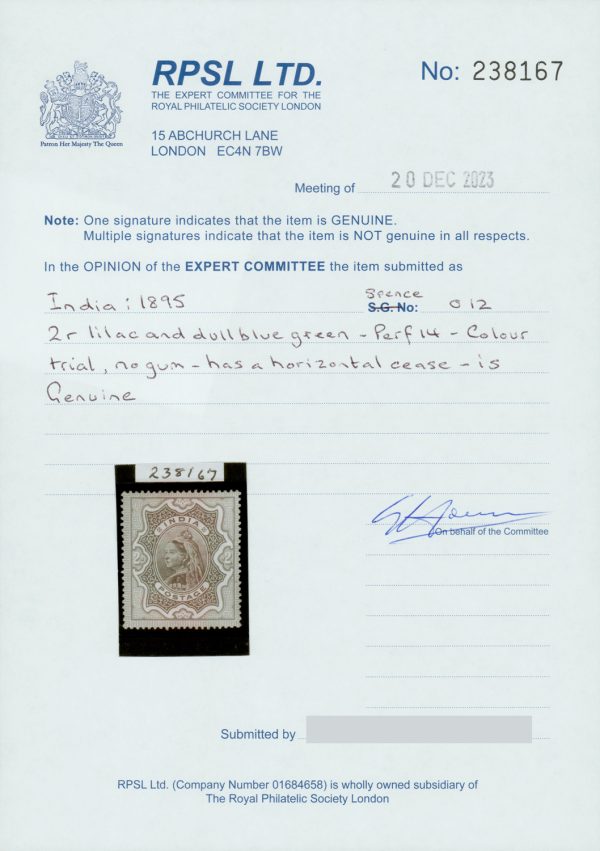 RPSL LTD.
THE EXPERT COMMITTEE FOR THE
ROYAL PHILATELIC SOCIETY LONDON
No: 238167
Patron Her Majesty The Queen
15 ABCHURCH LANE
LONDON EC4N 7BW
Meeting of 20 DEC 2023
Note: One signature indicates that the item is GENUINE.
Multiple signatures indicate that the item is NOT genuine in all respects.
In the OPINION of the EXPERT COMMITTEE the item submitted as
India: 1895 Spence S.G. No: 012
2r lilac and dull blue green - Perf 14 - Colour
trial, no gum - has a horizontal cease - is
Genuine
238167
INDIA
POSTAGE
On behalf of the Committee
Submitted by
RPSL Ltd. (Company Number 01684658) is wholly owned subsidiary of
The Royal Philatelic Society London